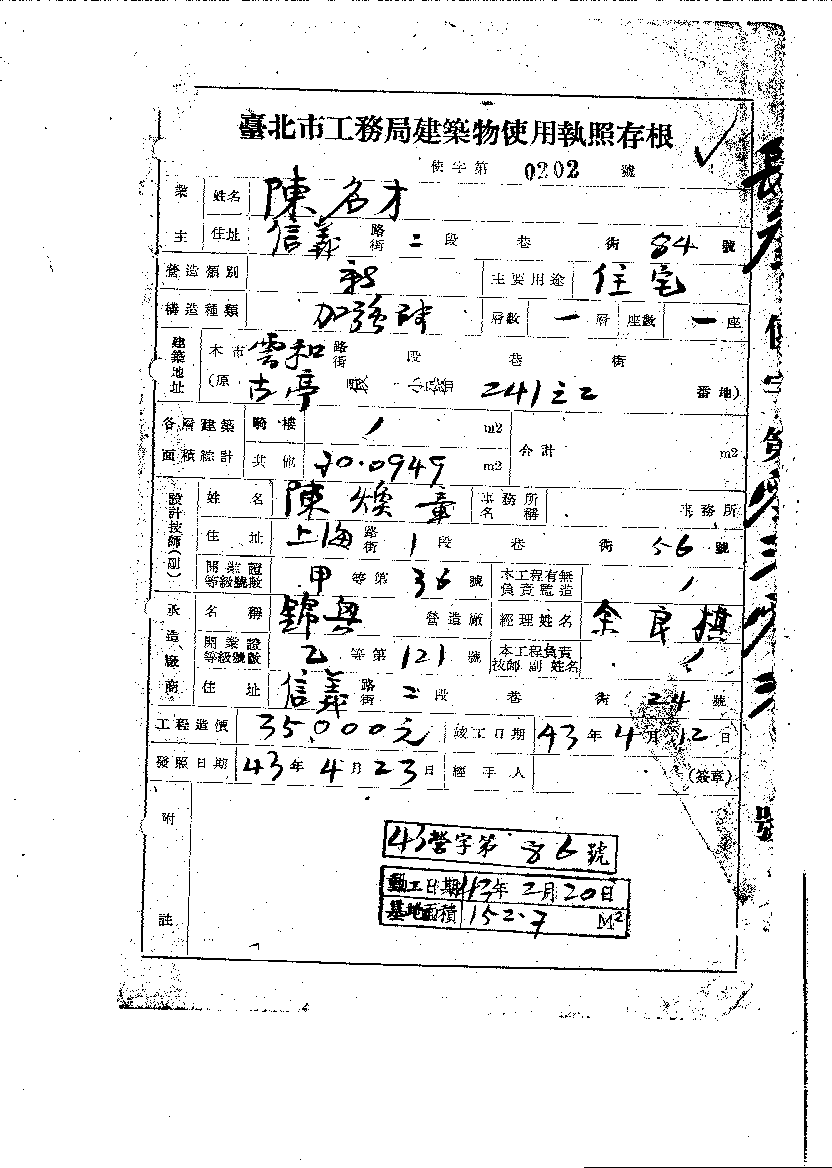 臺北市工務局建築物使用執照存根
使字第 0202 號
業主 姓名 陳名才
住址 信義 路街 二 段 巷 街 84 號
營造類別 新 主要用途 住宅
構造種類 加強磚 層數 一 層 座數 一 座
建築地址 本市 雲和 路街 段 巷 街
(原 古亭 段 小段 241之2 番地)
各層建築面積綜計 騎樓 / m2 合計 m2
其他 70.0949 m2
設計技師(副) 姓名 陳煥章 事務所名稱 事務所
住址 上海 路街 1 段 巷 街 56 號
開業證等級號數 甲 等第 36 號 本工程有無負責監造 /
承造廠商 名稱 錦興 營造廠 經理姓名 余良棋
開業證等級號數 乙 等第 121 號 本工程負責技師副姓名 /
住址 信義 路街 二 段 巷 街 24 號
工程造價 35,000元 竣工日期 43年4月12日
發照日期 43年4月23日 經手人 (簽章)
附註
43營字第 86 號
動工日期 43年2月20日
基地面積 152.7 M²